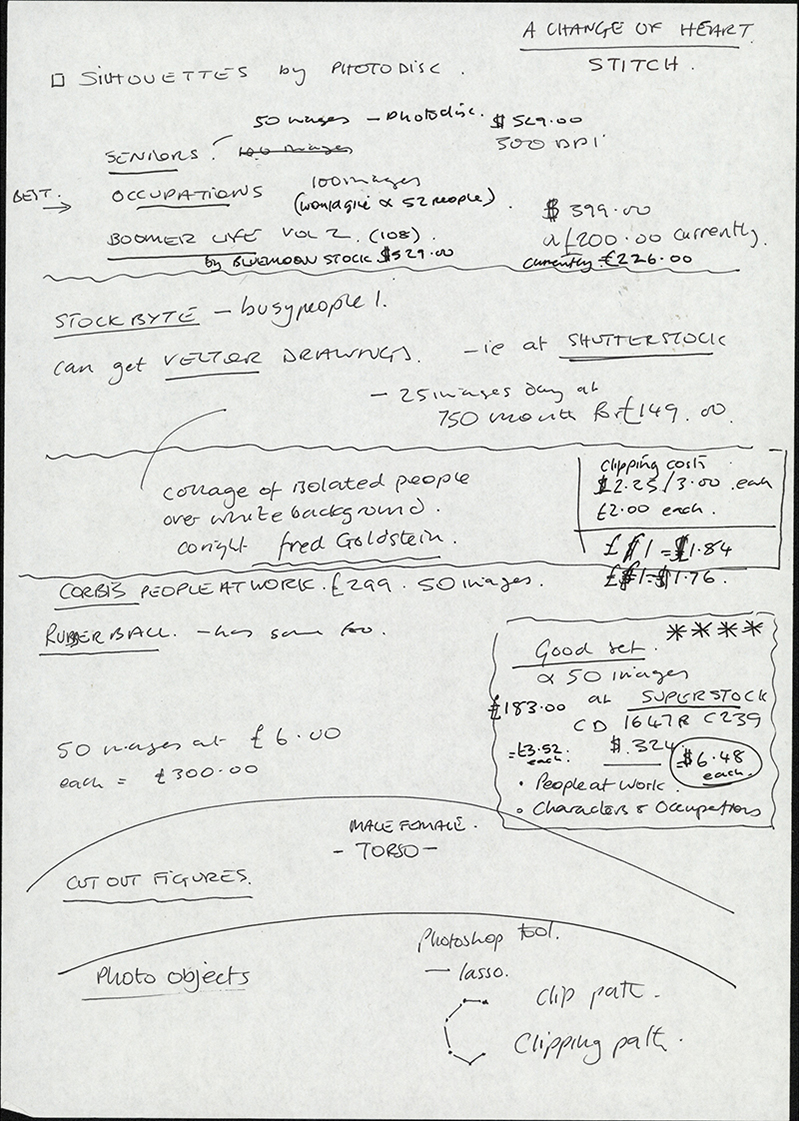 A CHANGE OF HEART
STITCH.
SILHOUETTES by PHOTODISC.
50 images - photodisc. $529.00
SENIORS. 100 images 300 DPI
BEST. OCCUPATIONS 100 images
(montage of 52 people). $399.00
BOOMER LIFE VOL 2. (108). or £200.00 currently.
by BLUEMOON STOCK $529.00 currently £226.00
STOCKBYTE - busy people 1.
can get VECTOR DRAWINGS. - ie at SHUTTERSTOCK
- 25 images day at
750 month for £149.00.
clipping costs
$2.25/3.00 each
£2.00 each.
collage of isolated people
over white background.
conright fred Goldstein.
£1=$1.84
£1=$1.76.
CORBIS PEOPLE AT WORK. £299. 50 images.
RUBBERBALL. - has some too.
****
Good set.
of 50 images
£183.00 at SUPERSTOCK
CD 1647R C239
=£3.52 each. $324 =$6.48 each.
• People at Work.
• Characters & Occupations
50 images at £6.00
each = £300.00
MALE FEMALE.
- TORSO -
CUT OUT FIGURES.
Photoshop tool.
Photo objects
- lasso.
clip path.
Clipping path.